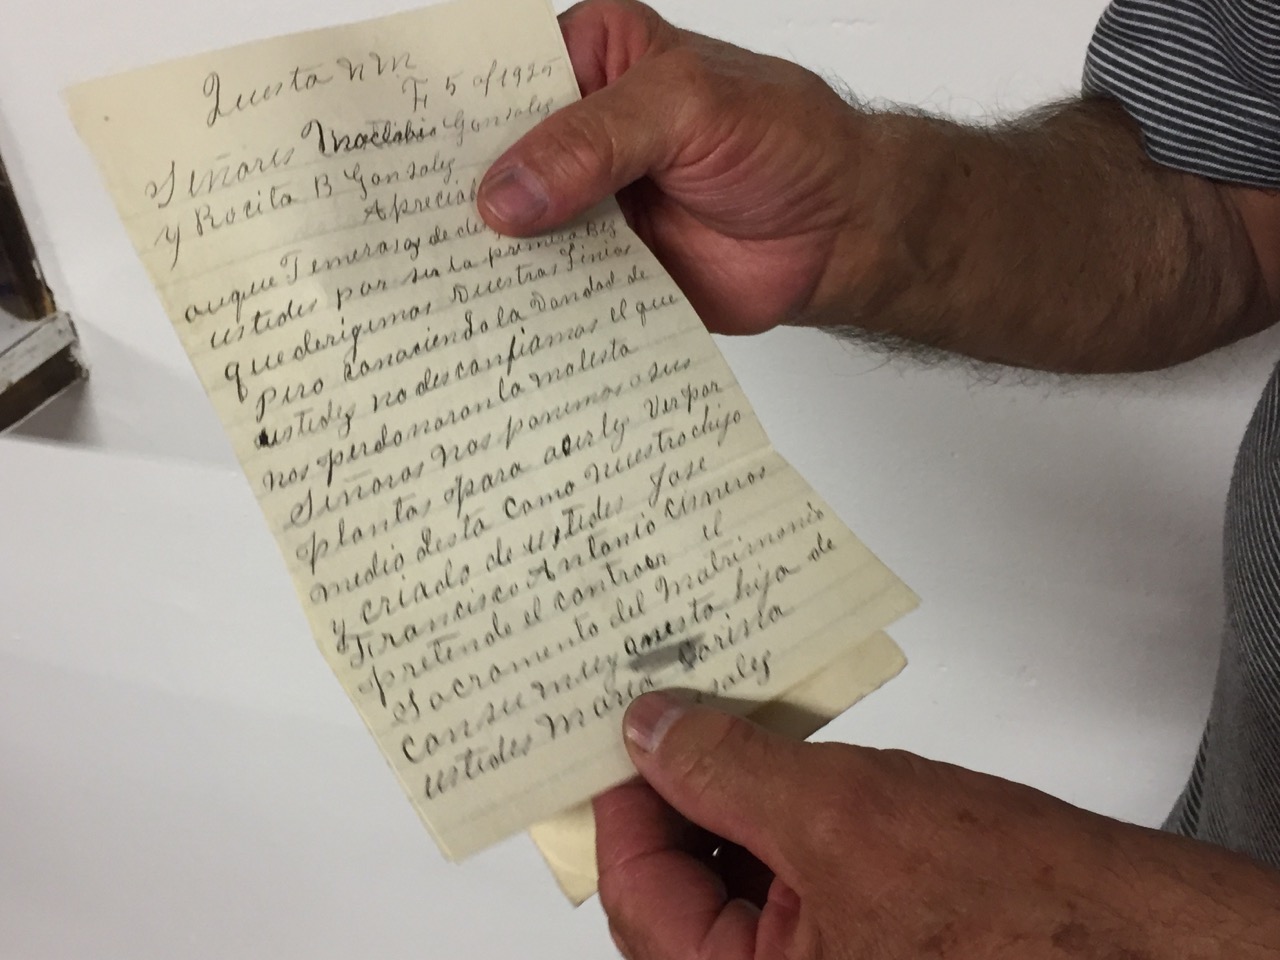 Questa N M
F 5 of 1925
Señores Maclobio Gonzales
y Rocita B Gonzalez
Apreciab
auque Temerosoy de
ustedes por ser la primera Bez
que derigimos Nuestras Linias
pero conociendo la Dondad de
ustedes no desconfiamos el que
nos perdonaran la molesta
Señores nos ponemos a sus
plantas para aserles Ver por
medio desta como nuestro hijo
y criado de ustedes Jose
Francisco Antonio Cisneros
pretende el contraer el
Sacramento del Matrimonio
con su muy onesta hija de
ustedes Maria Corina
nzales